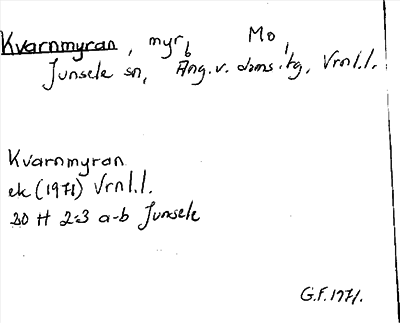 Kvarnmyran, myr, Mo,
b
Junsele sn, Ång. v. doms.-tg, Vrnl.l.
Kvarnmyran
ek (1971) Vrnl.l.
20 H 2-3 a-b Junsele
G.F. 1971.